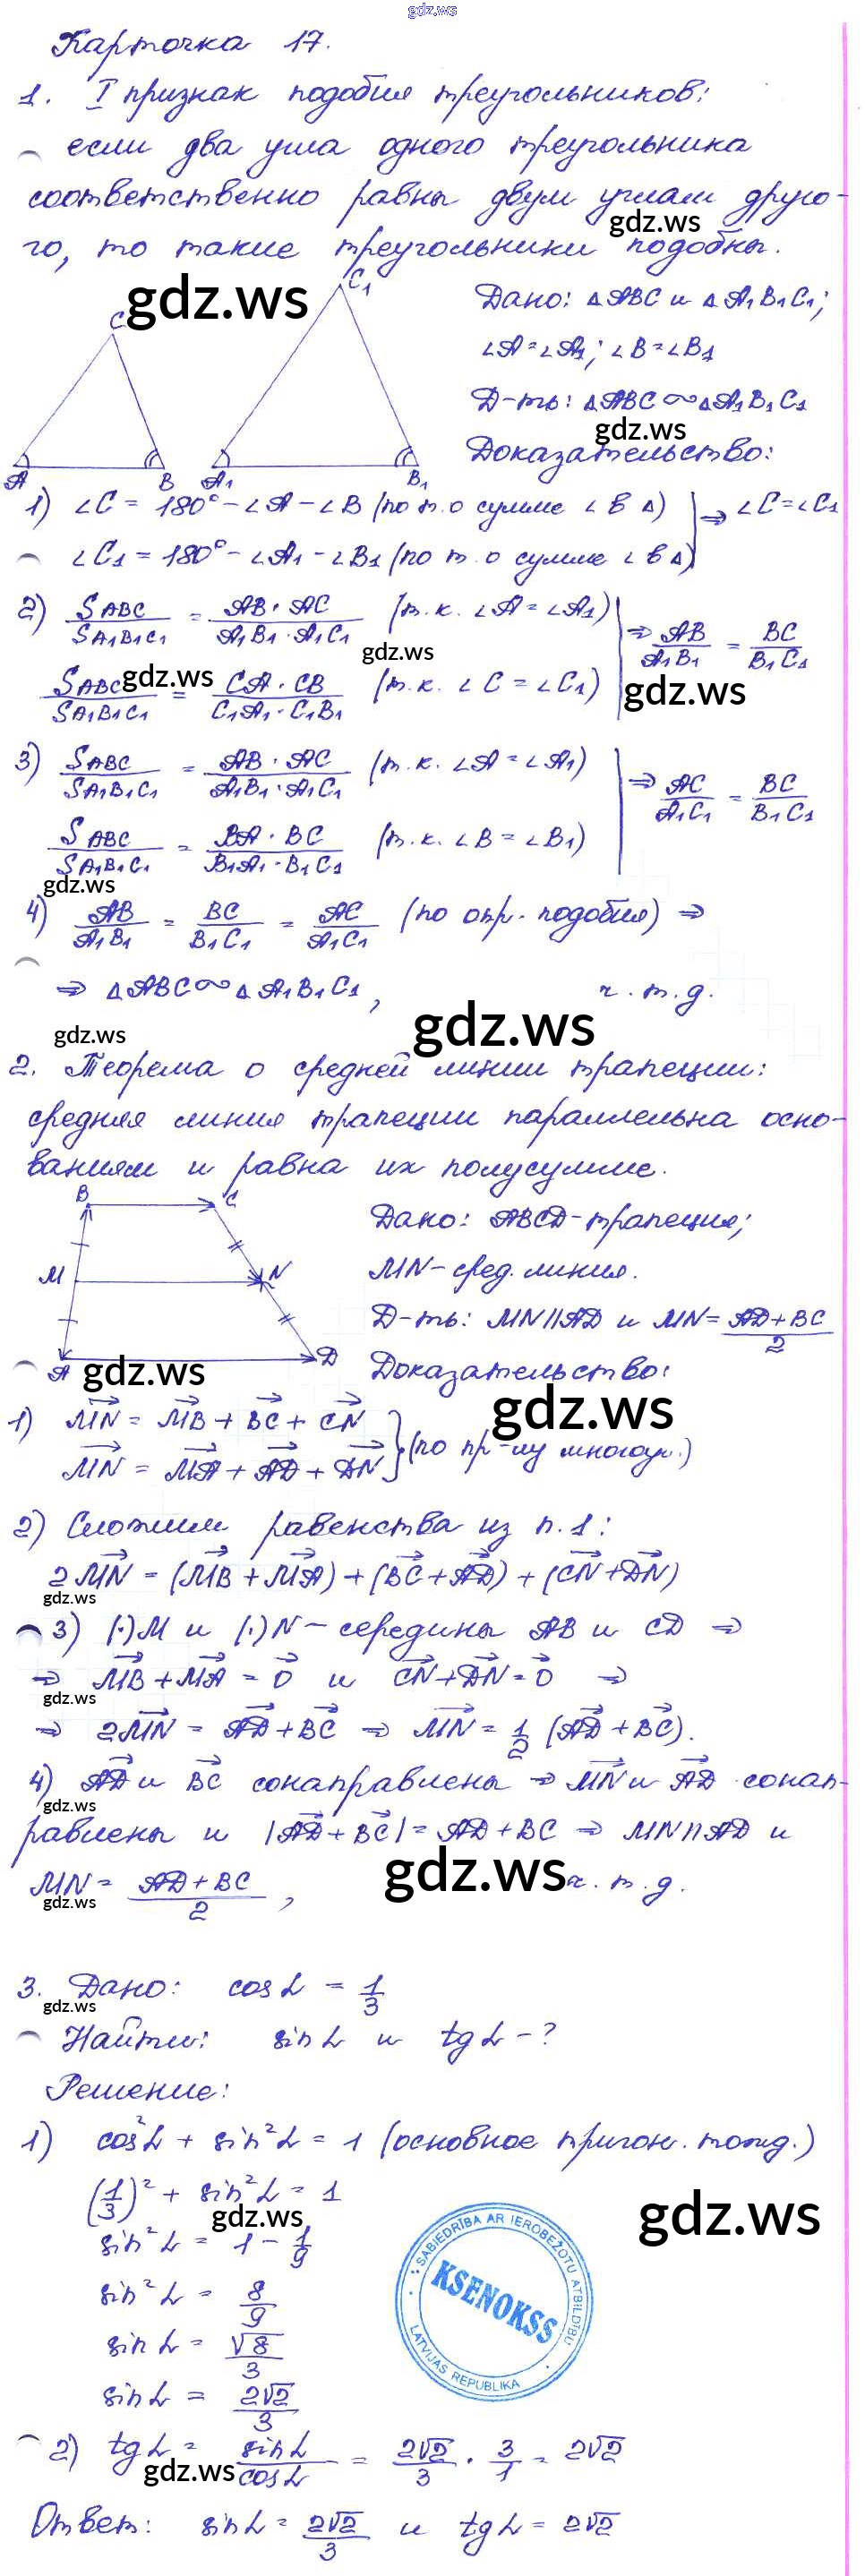 gdz.ws
Карточка 17.
1. I признак подобия треугольников:
если два угла одного треугольника
соответственно равны двум углам друго-
gdz.ws
го, то такие треугольники подобны.
gdz.ws
C
C1
A
B
A1
B1
Дано: △ABC и △A1B1C1;
∠A=∠A1; ∠B=∠B1
Д-ть: △ABC∾△A1B1C1
gdz.ws
Доказательство:
1) ∠C = 180° - ∠A - ∠B (по т. о сумме ∠ в △) | ⇒ ∠C=∠C1
∠C1 = 180° - ∠A1 - ∠B1 (по т. о сумме ∠ в △)
2) SABC/SA1B1C1 = AB · AC/A1B1 · A1C1 (т.к. ∠A = ∠A1) | ⇒ AB/A1B1 = BC/B1C1
gdz.ws
SABC/SA1B1C1 = CA · CB/C1A1 · C1B1 (т.к. ∠C = ∠C1)
gdz.ws
gdz.ws
3) SABC/SA1B1C1 = AB · AC/A1B1 · A1C1 (т.к. ∠A = ∠A1) | ⇒ AC/A1C1 = BC/B1C1
SABC/SA1B1C1 = BA · BC/B1A1 · B1C1 (т.к. ∠B = ∠B1)
gdz.ws
4) AB/A1B1 = BC/B1C1 = AC/A1C1 (по опр. подобия) ⇒
⇒ △ABC∾△A1B1C1, ч.т.д.
gdz.ws
gdz.ws
2. Теорема о средней линии трапеции:
средняя линия трапеции параллельна осно-
ваниям и равна их полусумме.
B
C
M
N
A
D
Дано: ABCD-трапеция;
MN-сред. линия.
Д-ть: MN||AD и MN=AD+BC/2
gdz.ws
Доказательство:
gdz.ws
1) MN = MB + BC + CN
MN = MA + AD + DN } (по пр-лу многоуг.)
2) Сложим равенства из п.1:
2MN = (MB + MA) + (BC + AD) + (CN + DN)
gdz.ws
3) (·)M и (·)N - середины AB и CD ⇒
⇒ MB + MA = 0 и CN + DN = 0 ⇒
gdz.ws
⇒ 2MN = AD + BC ⇒ MN = 1/2 (AD + BC).
4) AD и BC сонаправлены ⇒ MN и AD сонап-
gdz.ws
равлены и |AD + BC| = AD + BC ⇒ MN||AD и
gdz.ws
MN = AD+BC/2, ч.т.д.
gdz.ws
3. Дано: cos α = 1/3
gdz.ws
Найти: sin α и tg α - ?
Решение:
1) cos²α + sin²α = 1 (основное тригон. тожд.)
(1/3)² + sin²α = 1
gdz.ws
gdz.ws
sin²α = 1 - 1/9
sin²α = 8/9
sin α = √8/3
sin α = 2√2/3
SABIEDRĪBA AR IEROBEŽOTU ATBILDĪBU
KSENOKSS
LATVIJAS REPUBLIKA
2) tg α = sin α/cos α = 2√2/3 · 3/1 = 2√2
gdz.ws
Ответ: sin α = 2√2/3 и tg α = 2√2